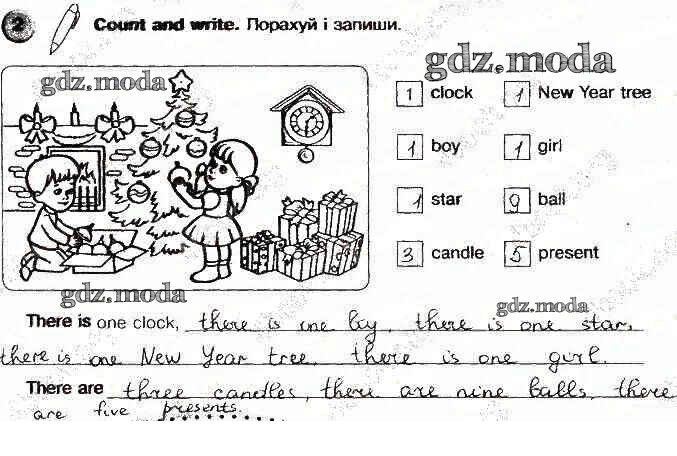 2 Count and write. Порахуй і запиши.
gdz.moda
gdz.moda
1 clock 1 New Year tree
1 boy 1 girl
1 star 9 ball
3 candle 5 present
gdz.moda
gdz.moda
There is one clock, there is one boy, there is one star,
there is one New Year tree, there is one girl.
There are three candles, there are nine balls, there
are five presents.